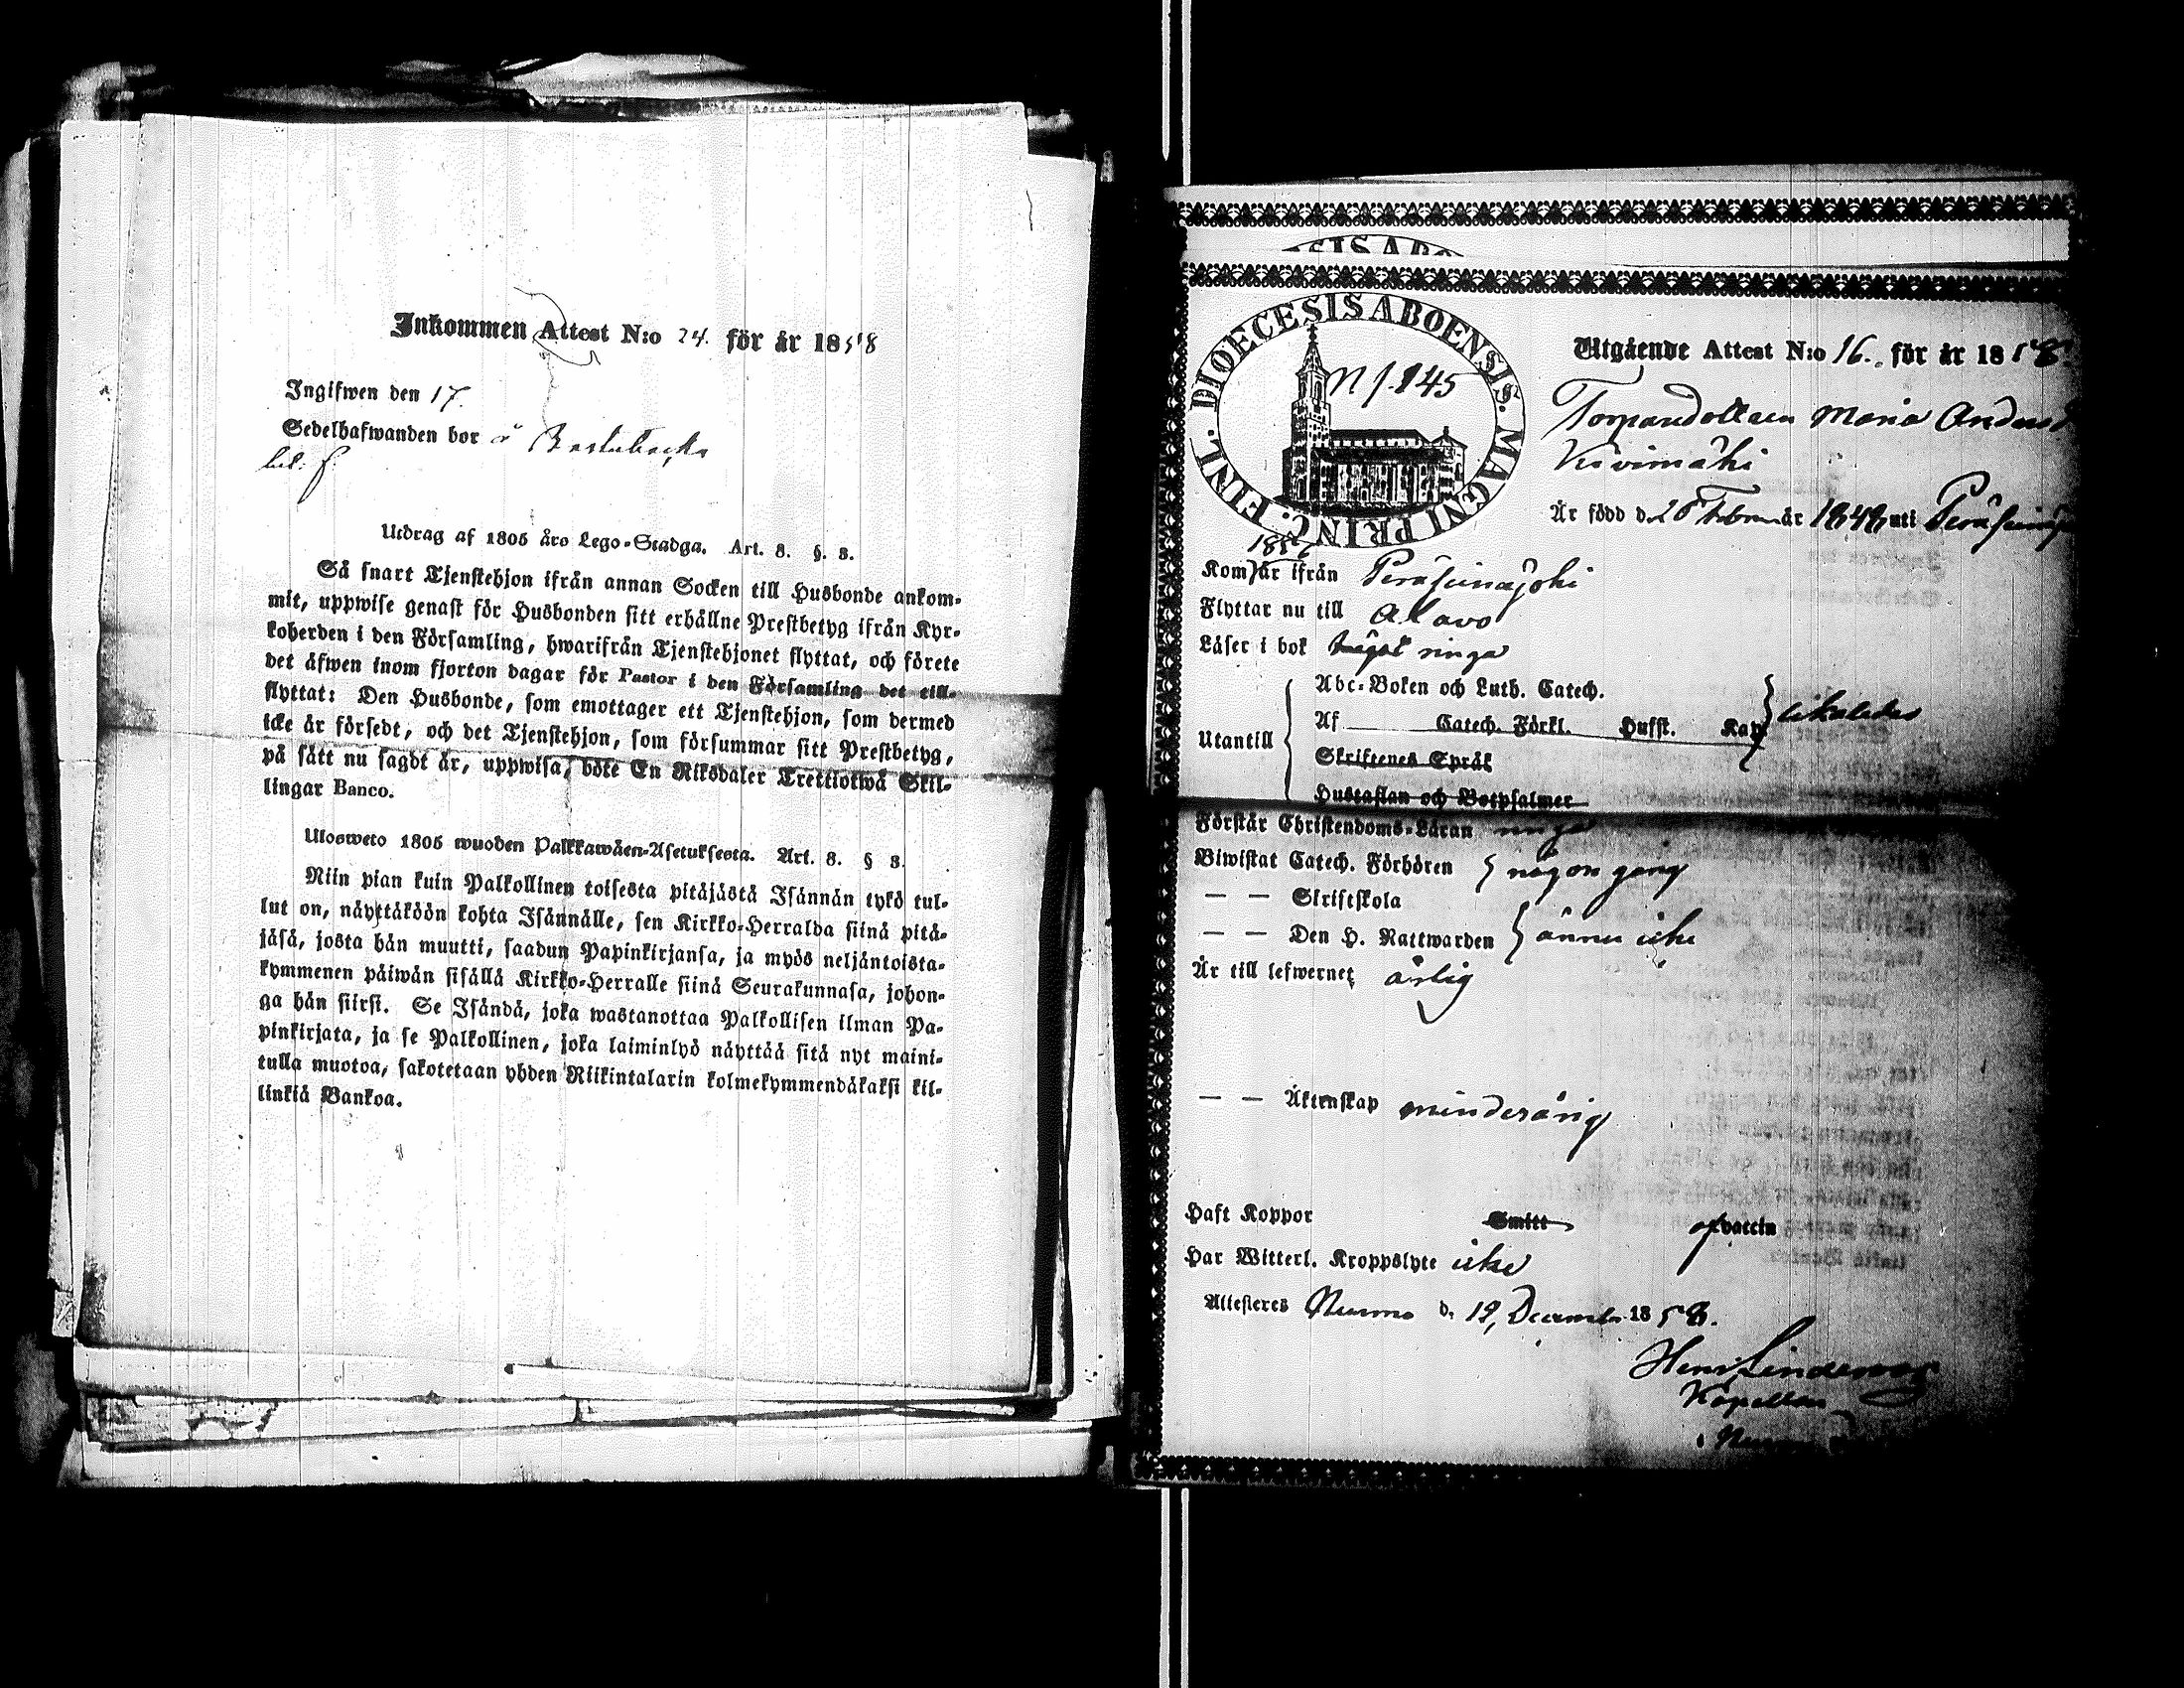 Inkommen Attest N:o 24. för år 1858
Ingifwen den 17.
Sedelhafwanden bor å
Utdrag af 1805 års Lego-Stadga. Art. 8. §. 3.
Så snart Tjenstehjon ifrån annan Socken till Husbonde ankom-
mit, uppwise genast för Husbonden sitt erhållne Prestbetyg ifrån Kyr-
koherden i den Församling, hwarifrån Tjenstehjonet flyttat, och förete
det äfwen inom fjorton dagar för Pastor i den Församling det till-
flyttat: Den Husbonde, som emottager ett Tjenstehjon, som dermed
icke är försedt, och det Tjenstehjon, som försummar sitt Prestbetyg,
på sätt nu sagdt är, uppwisa, böte En Riksdaler Trettiotwå Skil-
lingar Banco.
Ulosweto 1805 wuoden Palkkawäen-Asetuksesta. Art. 8. § 3.
Niin pian kuin Palkollinen toisesta pitäjästä Isännän tykö tul-
lut on, näyttäköön kohta Isännälle, sen Kirkko-Herralda siinä pitä-
jäsä, josta hän muutti, saadun Papinkirjansa, ja myös neljäntoista-
kymmenen päiwän sisällä Kirkko-Herralle siinä Seurakunnasa, johon-
ga hän siirsi. Se Isändä, joka wastanottaa Palkollisen ilman Pa-
pinkirjata, ja se Palkollinen, joka laiminlyö näyttää sitä nyt maini-
tulla muotoa, sakotetaan yhden Riikintalarin kolmekymmendäkaksi kil-
linkiä Bankoa.
DIOECESIS ABOENSIS. MAGNI PRINC. FINL.
N f. 145
Utgående Attest N:o 16. för år 1858.
Torparedottren Maria Andersd
Kivimäki
Är född d. 26 Februar 1848 uti Peräseinäjo
1856
Kom år ifrån Peräseinäjoki
Flyttar nu till Alavo
Läser i bok något ringa
Abc-Boken och Luth. Catech.
Utantill Af Catech. Förkl. Hufst. Kap. likaledes
Skriftenes Språk
Hustaflan och Botpsalmer
Förstår Christendoms-Läran ringa
Biwistat Catech. Förhören någon gång
— — Skriftskola
— — Den H. Nattwarden ännu icke
Är till lefwernet ärlig
— — Äktenskap minderårig
Haft Koppor Smitt af vaccin
Har Witterl. Kroppslyte icke
Attesteres Nurmo d. 12, December 1858.
Kapellan